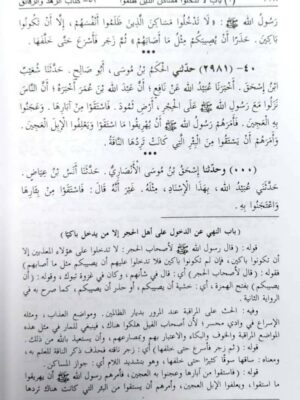 رَسُولُ اللهِ ﷺ: «لَا تَدْخُلُوا مَسَاكِنَ الَّذِينَ ظَلَمُوا أَنْفُسَهُمْ، إِلَّا أَنْ تَكُونُوا
بَاكِينَ. حَذَرًا أَنْ يُصِيبَكُمْ مِثْلُ مَا أَصَابَهُمْ» ثُمَّ زَجَرَ فَأَسْرَعَ حَتَّى خَلَّفَهَا.
٤٠- (٢٩٨١) حَدَّثَنِي الْحَكَمُ بْنُ مُوسَى، أَبُو صَالِحٍ. حَدَّثَنَا شُعَيْبُ
بْنُ إِسْحَقَ. أَخْبَرَنَا عُبَيْدُ اللهِ عَنْ نَافِعٍ؛ أَنَّ عَبْدَ اللهِ بْنَ عُمَرَ أَخْبَرَهُ؛ أَنَّ النَّاسَ
نَزَلُوا مَعَ رَسُولِ اللهِ ﷺ عَلَى الْحِجْرِ، أَرْضِ ثَمُودَ. فَاسْتَقَوْا مِنْ آبَارِهَا. وَعَجَنُوا
بِهِ الْعَجِينَ. فَأَمَرَهُمْ رَسُولُ اللهِ ﷺ أَنْ يُهَرِيقُوا مَا اسْتَقَوْا وَيَعْلِفُوا الْإِبِلَ الْعَجِينَ.
وَأَمَرَهُمْ أَنْ يَسْتَقُوا مِنَ الْبِئْرِ الَّتِي كَانَتْ تَرِدُهَا النَّاقَةُ.
(٠٠٠) وحَدَّثَنَا إِسْحَقُ بْنُ مُوسَى الْأَنْصَارِيُّ. حَدَّثَنَا أَنَسُ بْنُ عِيَاضٍ.
حَدَّثَنِي عُبَيْدُ اللهِ، بِهَذَا الْإِسْنَادِ، مِثْلَهُ. غَيْرَ أَنَّهُ قَالَ: فَاسْتَقَوْا مِنْ بِئَارِهَا
وَاعْتَجَنُوا بِهِ.
(باب النهي عن الدخول على أهل الحجر إلا من يدخل باكيًا)
قوله: (قال رسول الله ﷺ لأصحاب الحجر: لا تدخلوا على هؤلاء المعذبين إلا
أن تكونوا باكين، فإن لم تكونوا باكين فلا تدخلوا عليهم أن يصيبكم مثل ما أصابهم)
فقوله: (قال لأصحاب الحجر) أي: قال في شأنهم، وكان في غزوة تبوك، وقوله: (أن
يصيبكم) بفتح الهمزة، أي: خشية أن يصيبكم، أو حذر أن يصيبكم، كما صرح به في
الرواية الثانية.
وفيه: الحث على المراقبة عند المرور بديار الظالمين. ومواضع العذاب، ومثله
الإسراع في وادي محسر؛ لأن أصحاب الفيل هلكوا هناك، فينبغي للمار في مثل هذه
المواضع المراقبة والخوف والبكاء والاعتبار بهم وبمصارعهم، وأن يستعيذ بالله من ذلك.
قوله: (ثم زجر فأسرع حتى خلفها) أي: زجر ناقته فحذف ذكر الناقة للعلم به،
ومعناه: ساقها سوقًا كثيرًا حتى خلفها، وهو بتشديد اللام أي: جاوز المساكن.
قوله: (فاستقوا من آبارها وعجنوا به العجين، فأمرهم رسول الله ﷺ أن يهريقوا
ما استقوا، ويعلفوا الإبل العجين، وأمرهم أن يستقوا من البئر التي كانت هناك تردها